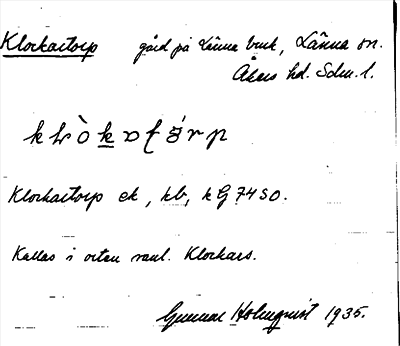 Klockartorp gård på Länna bruk, Länna sn.
Åkers hd. Sdm. l.
Klockartorp ek, kb, k G 7450.
Kallas i orten vanl. Klockars.
Gunnar Holmqvist 1935.